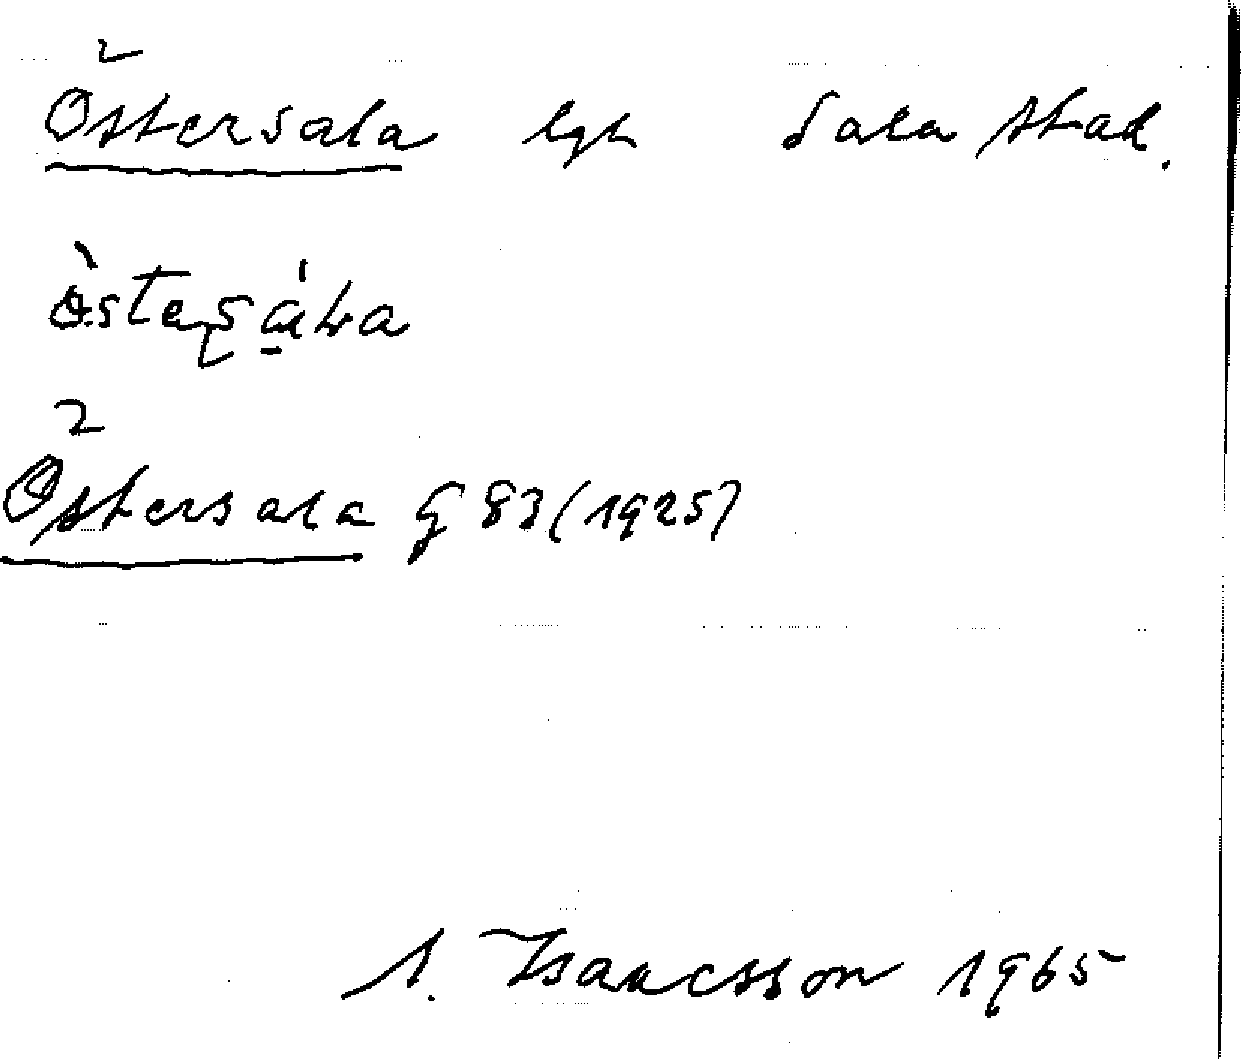 Östersala lgh Sala stad.
Östersala G 83 (1925)
S. Isacsson 1965